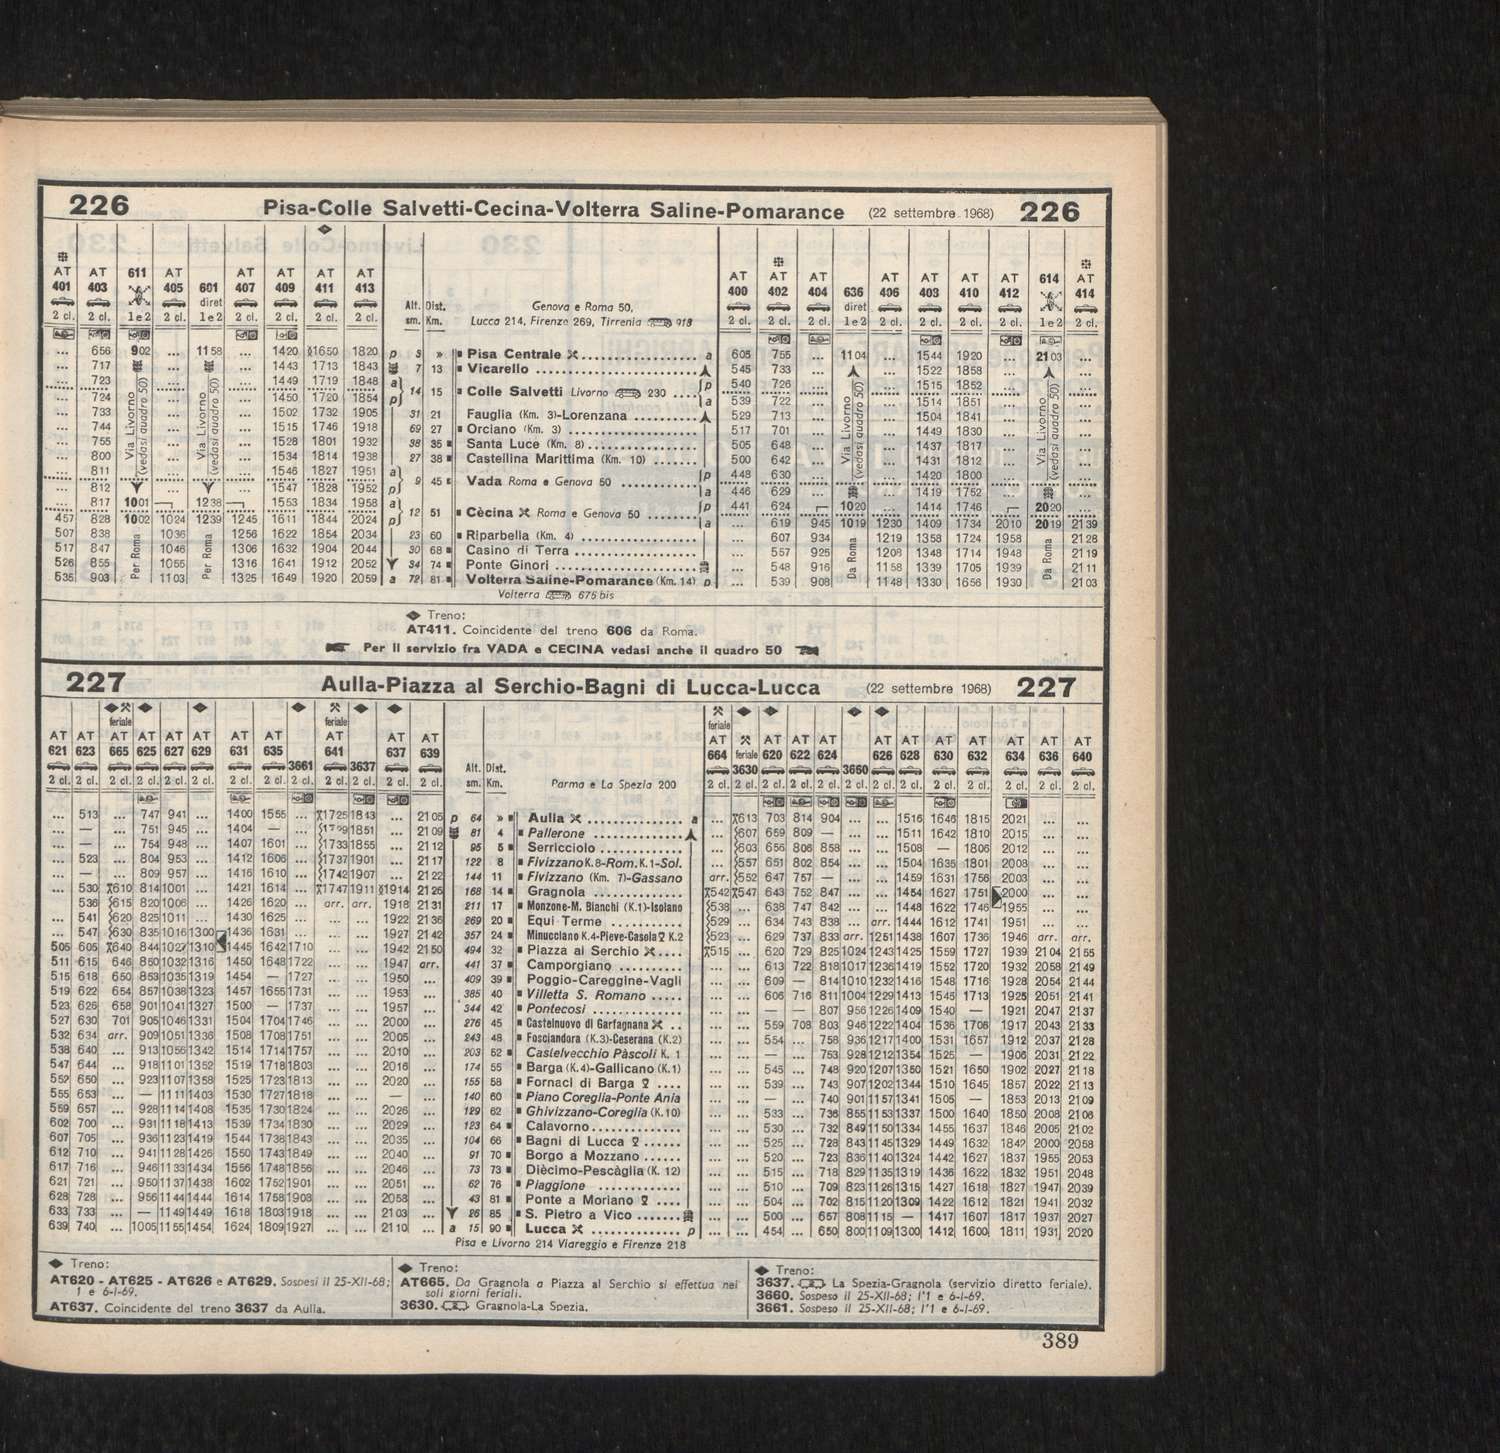 226 Pisa-Colle Salvetti-Cecina-Volterra Saline-Pomarance (22 settembre 1968) 226
AT 401 2 cl. AT 403 2 cl. 611 1 e 2 AT 405 2 cl. 601 diret 1 e 2 AT 407 2 cl. AT 409 2 cl. AT 411 2 cl. AT 413 2 cl. Alt. sm. Dist. Km. Genova e Roma 50, Lucca 214, Firenze 269, Tirrenia 918 AT 400 2 cl. AT 402 2 cl. AT 404 2 cl. 636 diret 1 e 2 AT 406 2 cl. AT 408 2 cl. AT 410 2 cl. AT 412 2 cl. 614 1 e 2 AT 414 2 cl.
... 656 902 ... 1158 ... 1420 1650 1820 p 3 » Pisa Centrale a 605 755 ... 1104 ... 1544 1920 ... 2103 ...
... 717 ... ... 1443 1713 1843 7 13 Vicarello 545 733 ... ... 1522 1858 ... ...
... 723 ... ... 1449 1719 1848 a 14 15 Colle Salvetti Livorno 230 p 540 726 ... ... 1515 1852 ... ...
... 724 ... ... 1450 1720 1854 p a 539 722 ... ... 1514 1851 ... ...
... 733 ... ... 1502 1732 1905 31 21 Fauglia (Km. 3)-Lorenzana 529 713 ... ... 1504 1841 ... ...
... 744 ... ... 1515 1746 1918 69 27 Orciano (Km. 3) 517 701 ... ... 1449 1830 ... ...
... 755 ... ... 1528 1801 1932 38 35 Santa Luce (Km. 8) 505 648 ... ... 1437 1817 ... ...
... 800 ... ... 1534 1814 1938 27 38 Castellina Marittima (Km. 10) 500 642 ... ... 1431 1812 ... ...
... 811 ... ... 1546 1827 1951 a 9 45 Vada Roma e Genova 50 p 448 630 ... ... 1420 1800 ... ...
... 812 ... ... 1547 1828 1952 p a 446 629 ... ... 1419 1752 ... ...
... 817 1001 1238 1553 1834 1958 a 12 51 Cècina Roma e Genova 50 p 441 624 1020 ... 1414 1746 2020 ...
457 828 1002 1024 1239 1245 1611 1844 2024 p a ... 619 945 1019 1230 1409 1734 2010 2019 2139
507 838 1036 1256 1622 1854 2034 23 60 Riparbella (Km. 4) ... 607 934 1219 1358 1724 1958 2128
517 847 1046 1306 1632 1904 2044 30 68 Casino di Terra ... 557 925 1208 1348 1714 1948 2119
526 855 1055 1316 1641 1912 2052 34 74 Ponte Ginori ... 548 916 1158 1339 1705 1939 2111
535 903 1103 1325 1649 1920 2059 a 72 81 Volterra Saline-Pomarance (Km. 14) p ... 539 908 1148 1330 1656 1930 2103
Via Livorno (vedasi quadro 50) Per Roma
Via Livorno (vedasi quadro 50) Per Roma
Via Livorno (vedasi quadro 50) Da Roma
Via Livorno (vedasi quadro 50) Da Roma
Volterra 675 bis
Treno:
AT411. Coincidente del treno 606 da Roma.
Per il servizio fra VADA e CECINA vedasi anche il quadro 50
227 Aulla-Piazza al Serchio-Bagni di Lucca-Lucca (22 settembre 1968) 227
AT 621 2 cl. AT 623 2 cl. feriale AT 665 2 cl. AT 625 2 cl. AT 627 2 cl. AT 629 2 cl. AT 631 2 cl. AT 635 2 cl. 3661 2 cl. feriale AT 641 2 cl. 3637 2 cl. AT 637 2 cl. AT 639 2 cl. Alt. sm. Dist. Km. Parma e La Spezia 200 feriale AT 664 2 cl. feriale 3630 2 cl. AT 620 2 cl. AT 622 2 cl. AT 624 2 cl. 3660 2 cl. AT 626 2 cl. AT 628 2 cl. AT 630 2 cl. AT 632 2 cl. AT 634 2 cl. AT 636 2 cl. AT 640 2 cl.
... 513 747 941 ... 1400 1555 ... 1725 1843 ... 2105 p 64 » Aulla a ... 613 703 814 904 ... ... 1516 1646 1815 2021 ... ...
... — 751 945 ... 1404 — ... 1851 ... 2109 81 4 Pallerone ... 607 659 809 — ... ... 1511 1642 1810 2015 ... ...
... — 754 948 ... 1407 1601 ... 1733 1855 ... 2112 95 5 Serricciolo ... 603 656 806 858 ... ... 1508 — 1806 2012 ... ...
... 523 804 953 ... 1412 1606 ... 1737 1901 ... 2117 122 8 Fivizzano K.8-Rom. K.1-Sol. ... 557 651 802 854 ... ... 1504 1635 1801 2008 ... ...
... — 809 957 ... 1416 1610 ... 1742 1907 ... 2122 144 11 Fivizzano (Km. 7)-Gassano arr. 552 647 757 — ... ... 1459 1631 1756 2003 ... ...
... 530 610 814 1001 ... 1421 1614 ... 1747 1911 1914 2126 168 14 Gragnola 542 547 643 752 847 ... ... 1454 1627 1751 2000 ... ...
... 536 615 820 1006 ... 1426 1620 ... arr. arr. 1918 2131 211 17 Monzone-M. Bianchi (K.1)-Isolano 538 ... 638 747 842 ... ... 1448 1622 1746 1955 ... ...
... 541 620 825 1011 ... 1430 1625 ... ... ... 1922 2136 269 20 Equi Terme 529 ... 634 743 838 ... arr. 1444 1612 1741 1951 ... ...
... 547 630 835 1016 1300 1436 1631 ... ... ... 1927 2142 357 24 Minucciano K.4-Pieve-Casola K.2 523 ... 629 737 833 arr. 1251 1438 1607 1736 1946 arr. arr.
505 605 640 844 1027 1310 1445 1642 1710 ... ... 1942 2150 494 32 Piazza al Serchio 515 ... 620 729 825 1024 1243 1425 1559 1727 1939 2104 2155
511 615 646 850 1032 1316 1450 1648 1722 ... ... 1947 arr. 441 37 Camporgiano ... ... 613 722 818 1017 1236 1419 1552 1720 1932 2058 2149
515 618 650 853 1035 1319 1454 — 1727 ... ... 1950 ... 409 39 Poggio-Careggine-Vagli ... ... 609 — 814 1010 1232 1416 1548 1716 1928 2054 2144
519 622 654 857 1038 1323 1457 1655 1731 ... ... 1953 ... 385 40 Villetta S. Romano ... ... 606 716 811 1004 1229 1413 1545 1713 1925 2051 2141
523 626 658 901 1041 1327 1500 — 1737 ... ... 1957 ... 344 42 Pontecosi ... ... — — 807 956 1226 1409 1540 — 1921 2047 2137
527 630 701 905 1046 1331 1504 1704 1746 ... ... 2000 ... 276 45 Castelnuovo di Garfagnana ... ... 559 708 803 946 1222 1404 1536 1706 1917 2043 2133
532 634 arr. 909 1051 1336 1508 1708 1751 ... ... 2005 ... 243 48 Fosciandora (K.3)-Ceserana (K.2) ... ... 554 ... 758 936 1217 1400 1531 1657 1912 2037 2128
538 640 ... 913 1056 1342 1514 1714 1757 ... ... 2010 ... 203 52 Castelvecchio Pàscoli K. 1 ... ... — ... 753 928 1212 1354 1525 — 1906 2031 2122
547 644 ... 918 1101 1352 1519 1718 1803 ... ... 2016 ... 174 55 Barga (K.4)-Gallicano (K.1) ... ... 545 ... 748 920 1207 1350 1521 1650 1902 2027 2118
552 650 ... 923 1107 1358 1525 1723 1813 ... ... 2020 ... 155 58 Fornaci di Barga ... ... 539 ... 743 907 1202 1344 1510 1645 1857 2022 2113
555 653 ... — 1111 1403 1530 1727 1818 ... ... — ... 140 60 Piano Coreglia-Ponte Ania ... ... — ... 740 901 1157 1341 1505 — 1853 2013 2109
559 657 ... 928 1114 1408 1535 1730 1824 ... ... 2026 ... 129 62 Ghivizzano-Coreglia (K.10) ... ... 533 ... 736 855 1153 1337 1500 1640 1850 2008 2106
602 700 ... 931 1118 1413 1539 1734 1830 ... ... 2029 ... 123 64 Calavorno ... ... 530 ... 732 849 1150 1334 1455 1637 1846 2005 2102
607 705 ... 936 1123 1419 1544 1738 1843 ... ... 2035 ... 104 66 Bagni di Lucca ... ... 525 ... 728 843 1145 1329 1449 1632 1842 2000 2058
612 710 ... 941 1128 1426 1550 1743 1849 ... ... 2040 ... 91 70 Borgo a Mozzano ... ... 520 ... 723 836 1140 1324 1442 1627 1837 1955 2053
617 716 ... 946 1133 1434 1556 1748 1856 ... ... 2046 ... 73 73 Diècimo-Pescàglia (K. 12) ... ... 515 ... 718 829 1135 1319 1436 1622 1832 1951 2048
621 721 ... 950 1137 1438 1602 1752 1901 ... ... 2051 ... 62 76 Piaggione ... ... 510 ... 709 823 1126 1315 1427 1618 1827 1947 2039
628 728 ... 956 1144 1444 1614 1758 1908 ... ... 2058 ... 43 81 Ponte a Moriano ... ... 504 ... 702 815 1120 1309 1422 1612 1821 1941 2032
633 733 ... — 1149 1449 1618 1803 1918 ... ... 2103 ... 26 85 S. Pietro a Vico ... ... 500 ... 657 808 1115 — 1417 1607 1817 1937 2027
639 740 ... 1005 1155 1454 1624 1809 1927 ... ... 2110 ... a 15 90 Lucca p ... ... 454 ... 650 800 1109 1300 1412 1600 1811 1931 2020
Pisa e Livorno 214 Viareggio e Firenze 218
Treno:
AT620 - AT625 - AT626 e AT629. Sospesi il 25-XII-68;
1 e 6-I-69.
AT637. Coincidente del treno 3637 da Aulla.
Treno:
AT665. Da Gragnola a Piazza al Serchio si effettua nei
soli giorni feriali.
3630. Gragnola-La Spezia.
Treno:
3637. La Spezia-Gragnola (servizio diretto feriale).
3660. Sospeso il 25-XII-68; l'1 e 6-I-69.
3661. Sospeso il 25-XII-68; l'1 e 6-I-69.
389